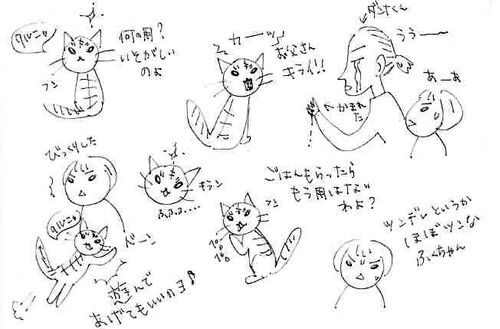 何の用?
いそがしい
のよ
フン
カーッ
お父さん
キライ!!
ダンナくん
うぅー
かまれ
た
あーぁ
びっくりした
バーン
遊んで
あげてもいいのヨ♪
キラン
ふふふ...
ごはんもらったら
もう用はない
わよ?
フン
ツンデレというか
ほぼツンな
ふくちゃん